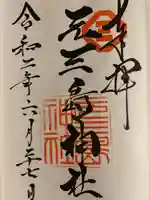 奉拝
元三島神社
令和二年六月二十七日